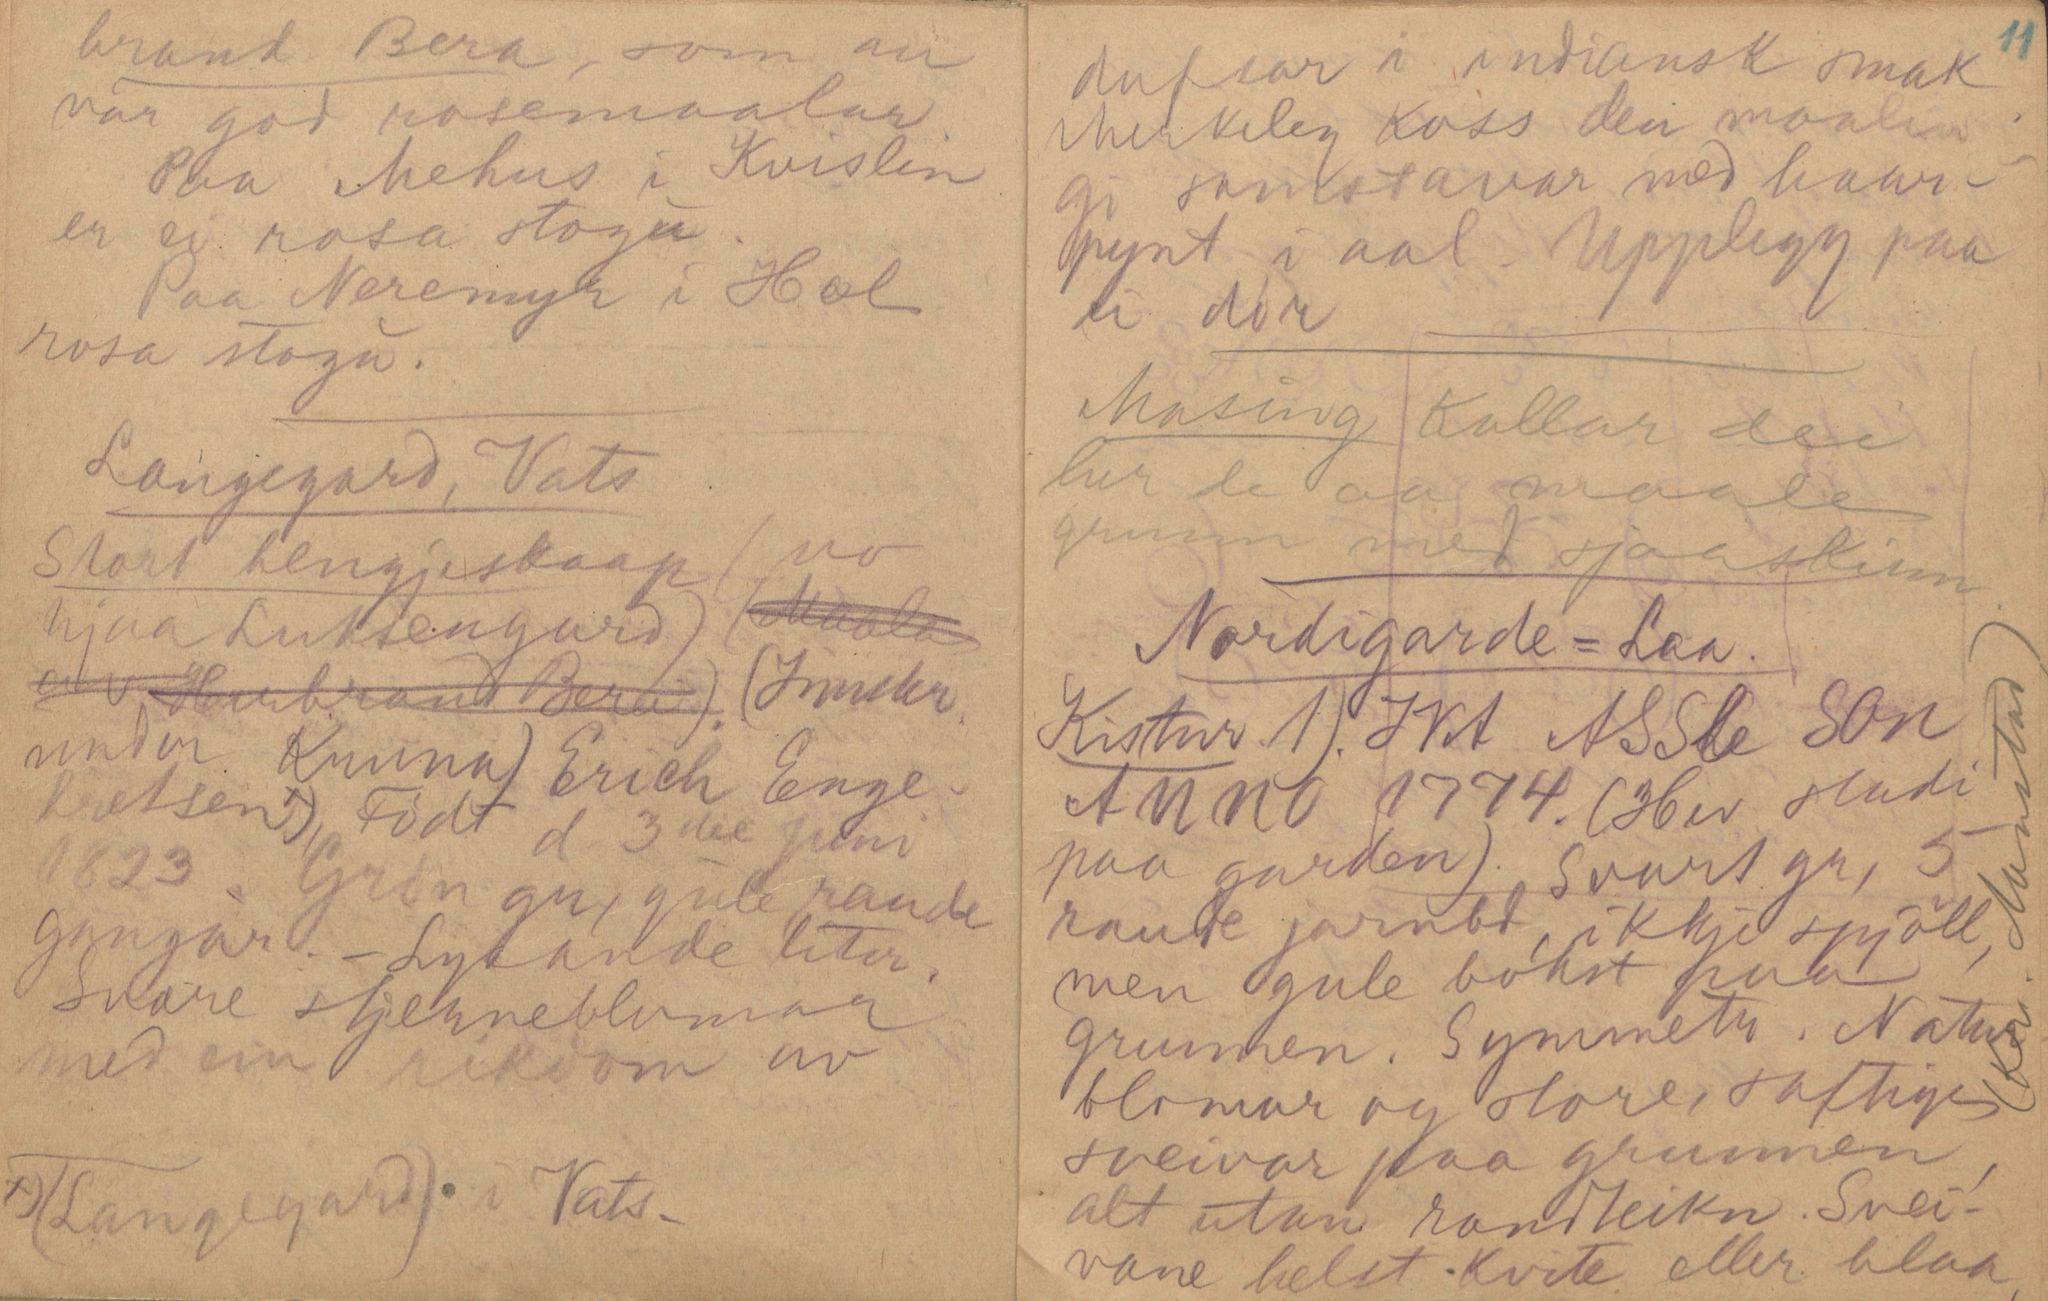 brand Bera, som au
var god rosemaalar.
Paa Mehus i Kvislen
er ei rosa stogu.
Paa Neremyr i Hol
rosa stogu.
Langegard, Vats
Stort hengjeskaap (no
hjaa Luksengard) (Maala
av Herbrand Bera). (Innskr.
under Kruna) Erich Enge-
bretsen x), Födt d 3die juni
1823. Grön gr, gule, raude
gangar. – Lysande leter.
Svære stjerneblomar
med ein rikdom av
x) (Langegard) i Vats.
11
duskar i indiansk smak
Merkeleg koss den maalin
gi samstavar med haar-
pynt i aal. Upplegg paa
ei dör
Masing kallar dei
her de aa maale
grunn med sjaaskinn.
Nordigarde = Laa.
Kistur 1). IVA ASSle SON
ANNO 1774. (Hev stadi
paa garden). Svart gr, 5
raude jarnbd, ikkje spjöll,
men gule bokst paa
grunnen. Symmetri. Natur
blomar og store, saftige
sveivar paa grunnen,
alt utan randteikn. Svei-
vane helst kvite eller blaa,